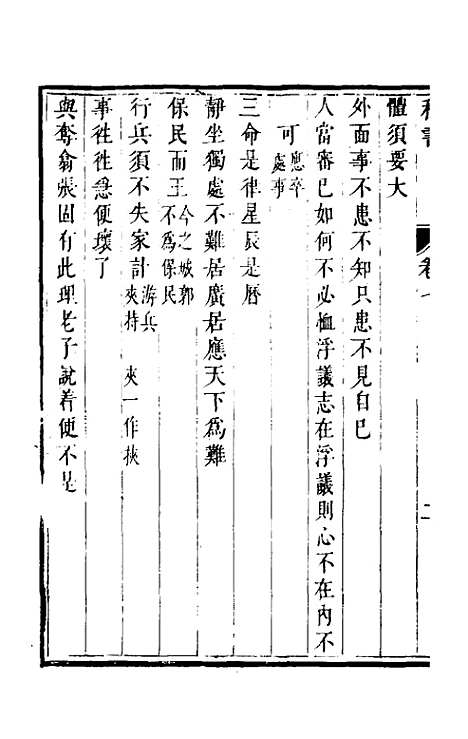 體須要大
外面事不患不知只患不見自己
人當審已如何不必恤浮議志在浮議則心不在內不
可應卒處事
三命是律星辰是曆
靜坐獨處不難居廣居應天下爲難
保民而王今之城郭不爲保民
行兵須不失家計游兵夾持 夾一作挾
事往往急便壞了
與奪翕張固有此理老子說着便不是